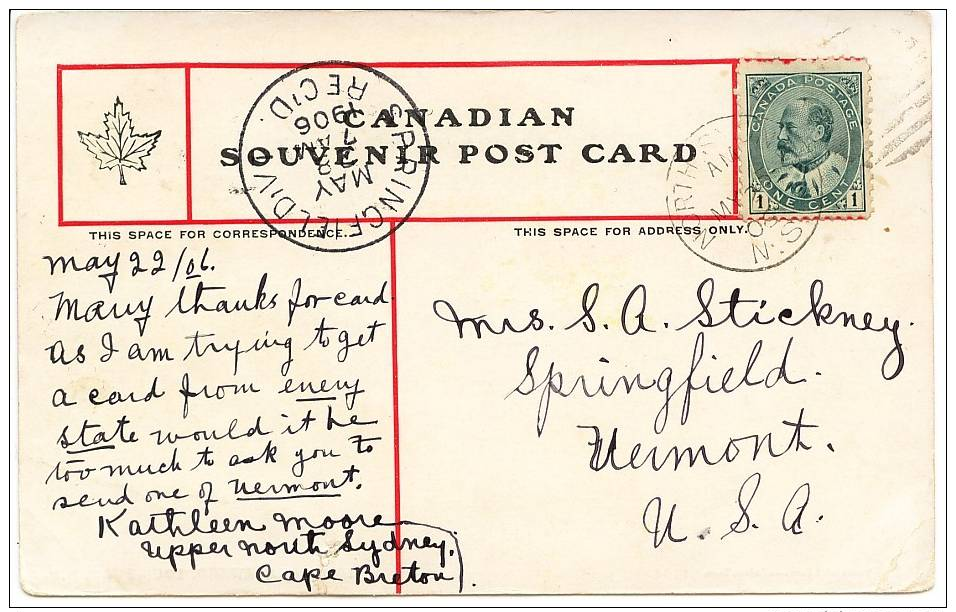 CANADIAN
SOUVENIR POST CARD
SPRINGFIELD VT.
MAY
1906
REC'D.
CANADA POSTAGE
1 ONE CENT 1
NORTH
AM
MY
06
N.S.
THIS SPACE FOR CORRESPONDENCE.
THIS SPACE FOR ADDRESS ONLY.
May 22/06.
Many thanks for card.
As I am trying to get
a card from every
state would it be
too much to ask you to
send one of Vermont.
Kathleen Moore
Upper North Sydney.
Cape Breton.
Mrs. S. A. Stickney.
Springfield.
Vermont.
U. S. A.